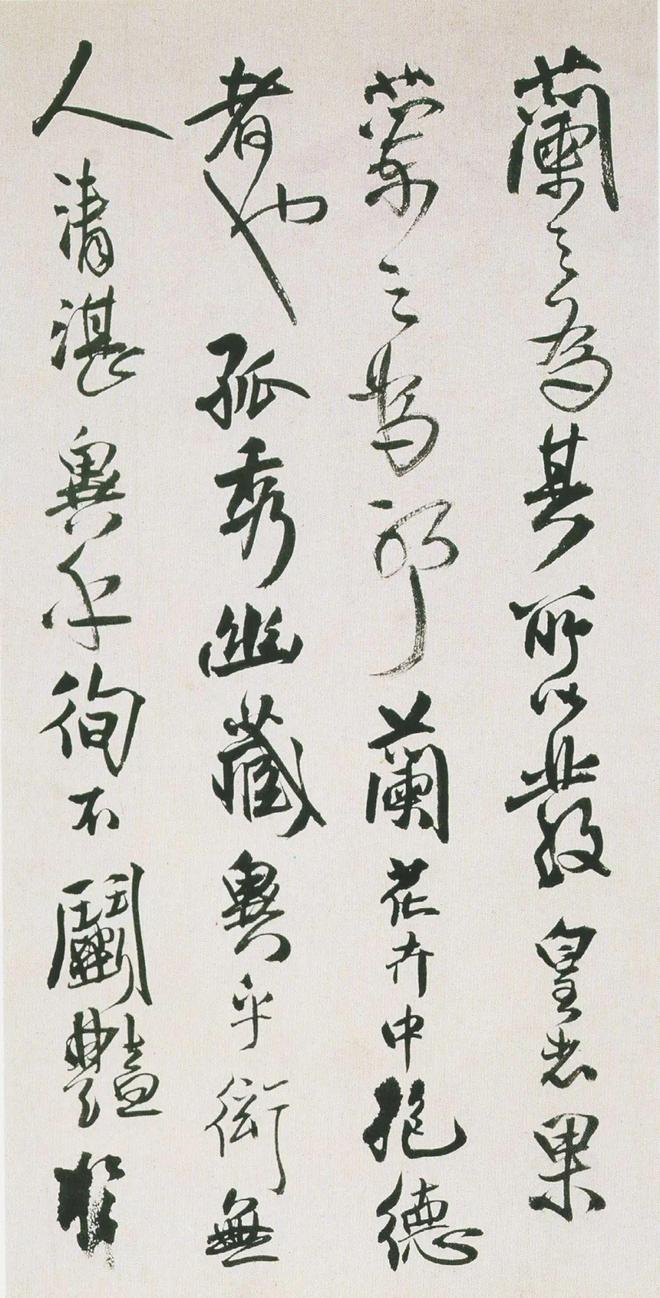 蘭之為其所以發皇者果
蘭之為耶蘭花卉中抱德
者也孤秀幽藏異乎衒無
人清湛異乎徇不鬭豔